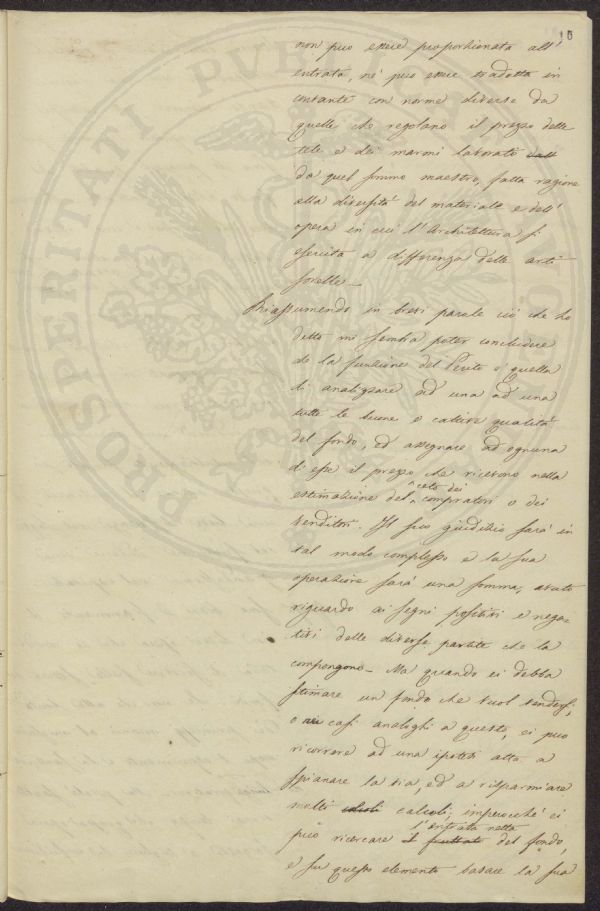 10
non può essere proporzionata all'
entrata, nè può essere tradotta in
contante con norme diverse da
quelle che regolano il prezzo delle
tele e dei marmi lavorati
da quel sommo maestro, fatta ragione
alla diversità del materiale e dell'
opera in cui l'Architettura si
esercita a differenza delle arti
sorelle_
Riassumendo in brevi parole ciò che ho
detto mi sembra poter concludere
che la funzione del Perito è quella
di analizzare ad una ad una
tutte le buone e cattive qualità
del fondo, ed assegnare ad ognuna
di esse il prezzo che ricevono nella
estimazione del ceto dei compratori o dei
venditori. Il suo giudizio sarà in
tal modo complesso e la sua
operazione sarà una somma, avuto
riguardo ai segni positivi e nega-
tivi delle diverse partite che la
compongono_ Ma quando ei debba
stimare un fondo che vuol vendersi,
o in casi analoghi a questo, ei può
ricorrere ad una ipotesi atta a
spianare la via, ed a risparmiare
molti calcoli; imperocchè ei
può ricercare l'entrata netta del fondo,
e su questo elemento basare la sua
PROSPERITATI PVBLICAE